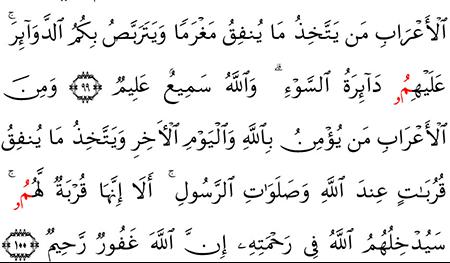 ٱلْأَعْرَابِ مَن يَتَّخِذُ مَا يُنفِقُ مَغْرَمٗا وَيَتَرَبَّصُ بِكُمُ ٱلدَّوَآئِرَۚ
عَلَيْهِمُۥ دَآئِرَةُ ٱلسَّوْءِۗ وَٱللَّهُ سَمِيعٌ عَلِيمٞ ٩٩ وَمِنَ
ٱلْأَعْرَابِ مَن يُؤْمِنُ بِٱللَّهِ وَٱلْيَوْمِ ٱلْأٓخِرِ وَيَتَّخِذُ مَا يُنفِقُ
قُرُبَٰتٍ عِندَ ٱللَّهِ وَصَلَوَٰتِ ٱلرَّسُولِۚ أَلَا إِنَّهَا قُرْبَةٞ لَّهُمُۥۚ
سَيُدْخِلُهُمُ ٱللَّهُ فِي رَحْمَتِهِۦ إِنَّ ٱللَّهَ غَفُورٞ رَّحِيمٞ ١٠٠